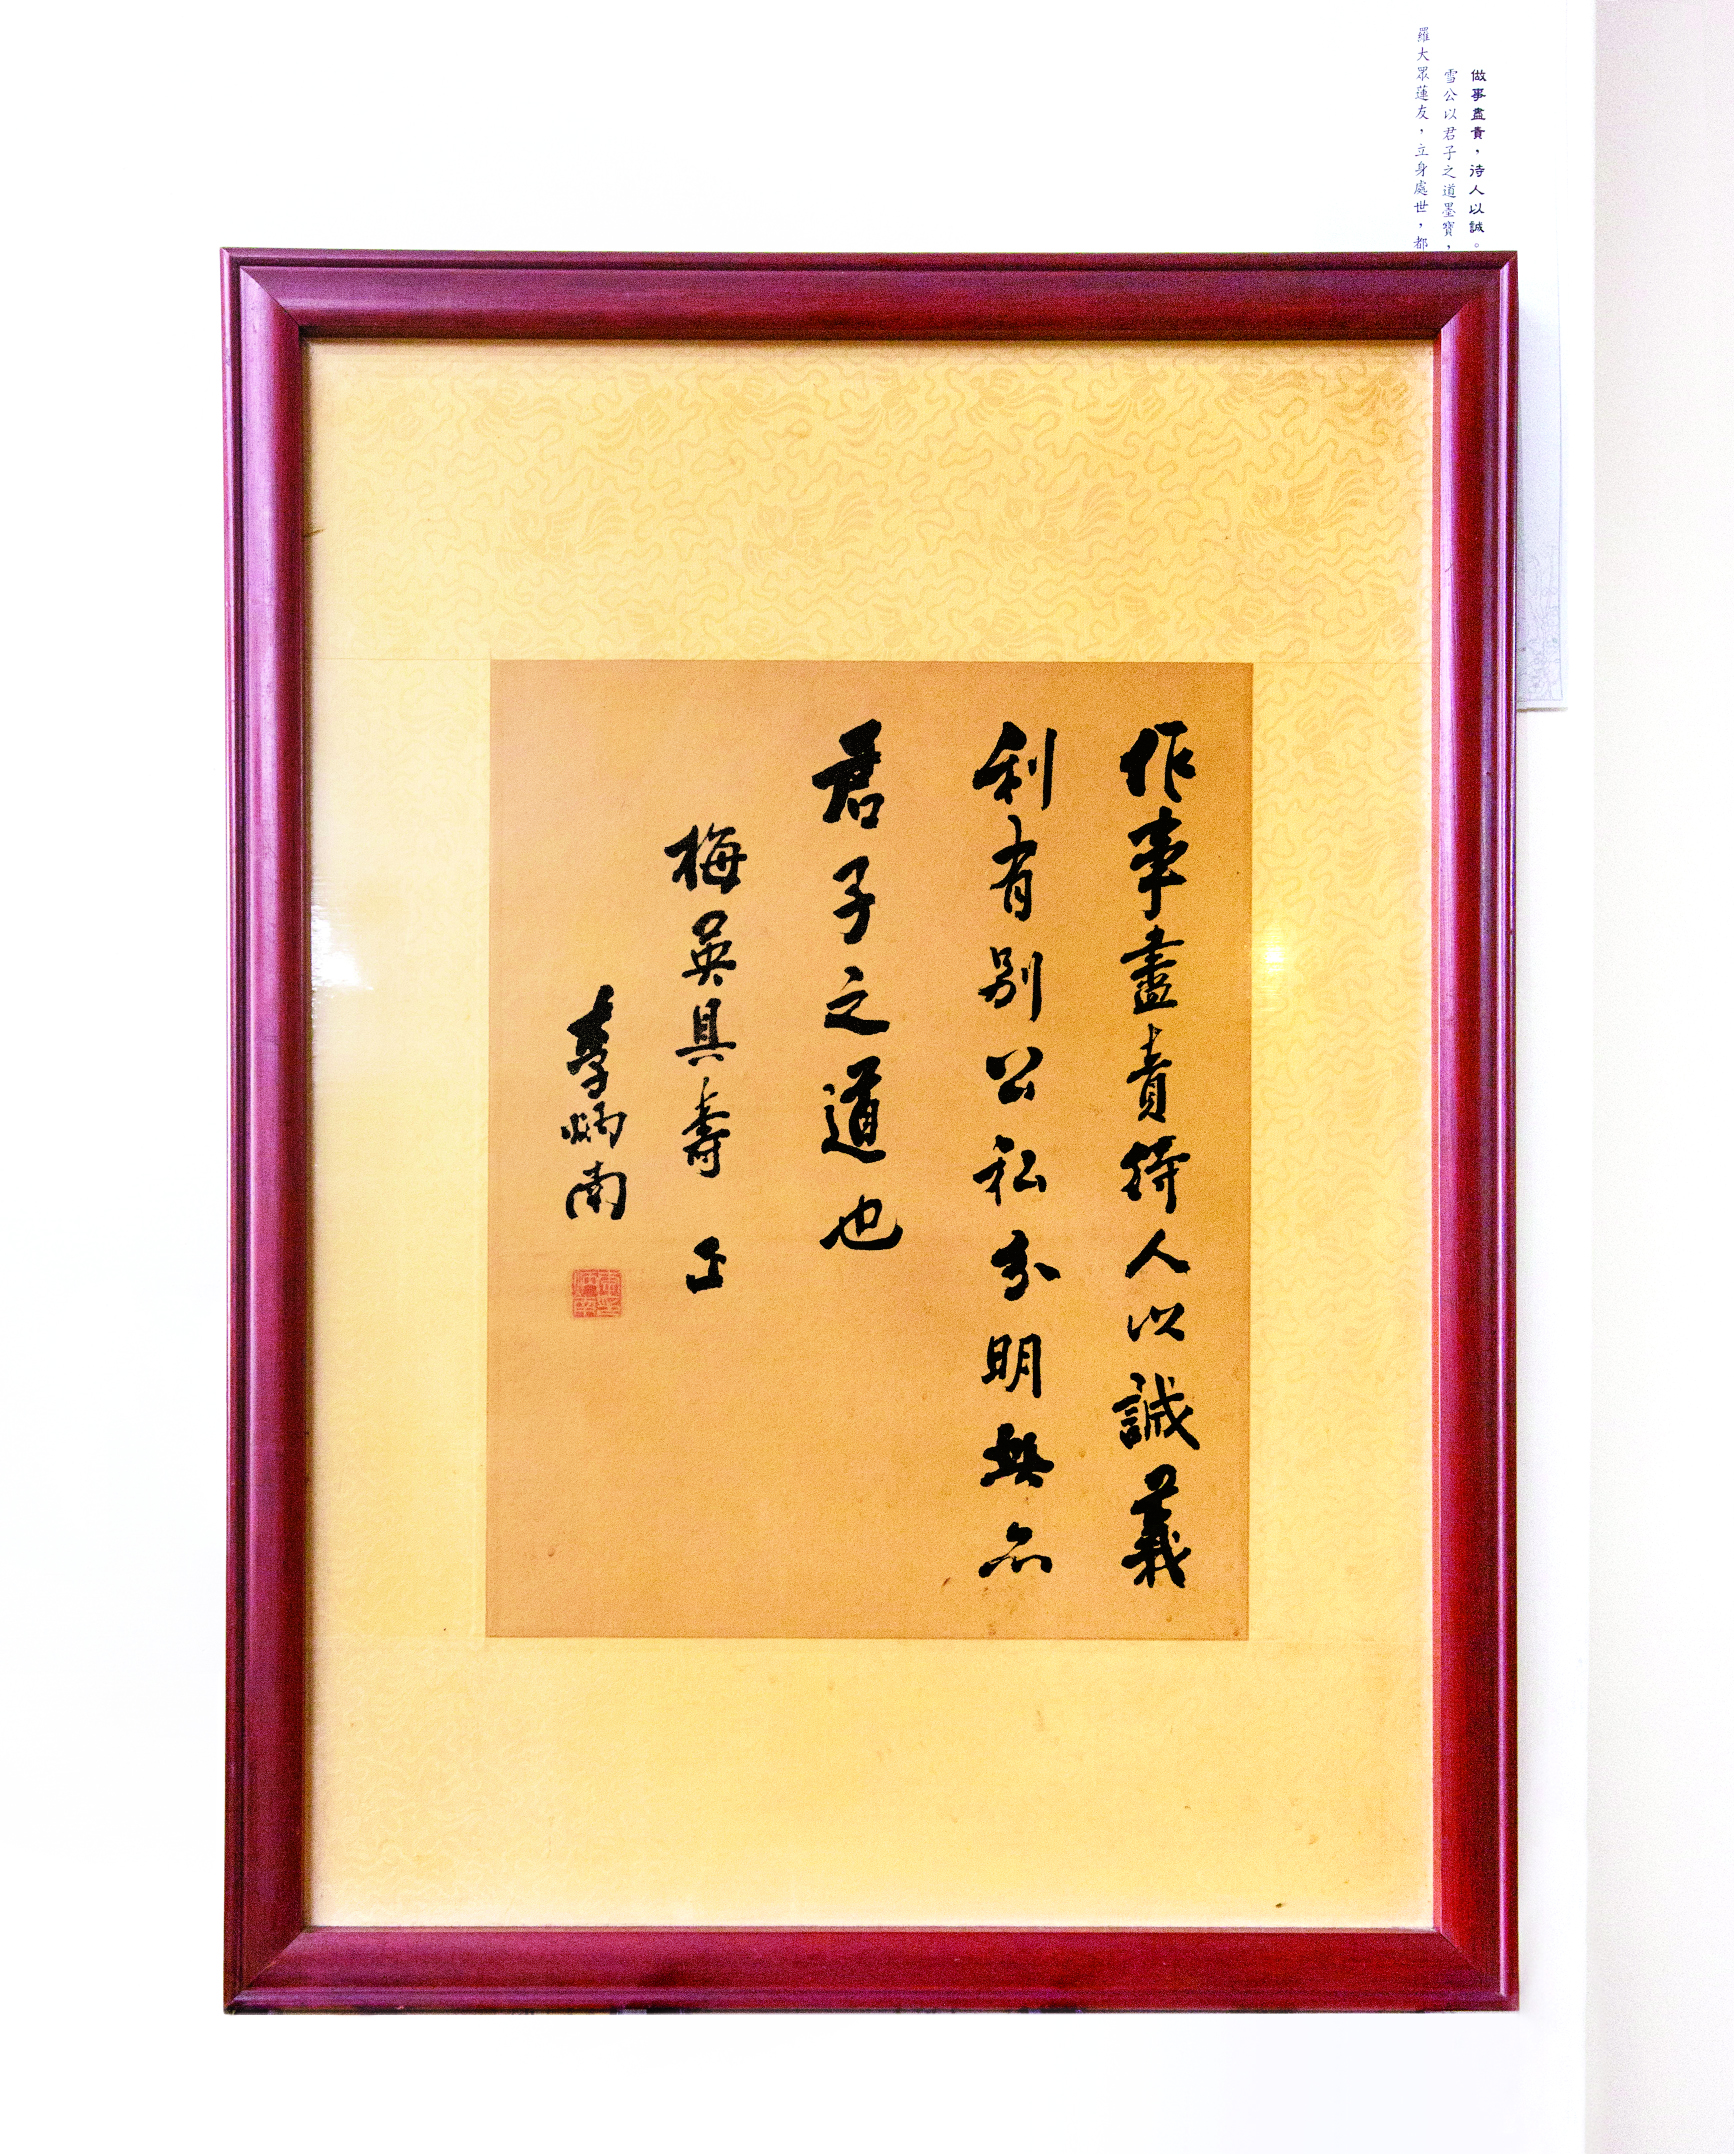 做事盡責，待人以誠。
雪公以君子之道墨寶，
羅大眾蓮友，立身處世，都
作事盡責待人以誠義
利有别公私分明無不
君子之道也
梅英具壽 正
李炳南